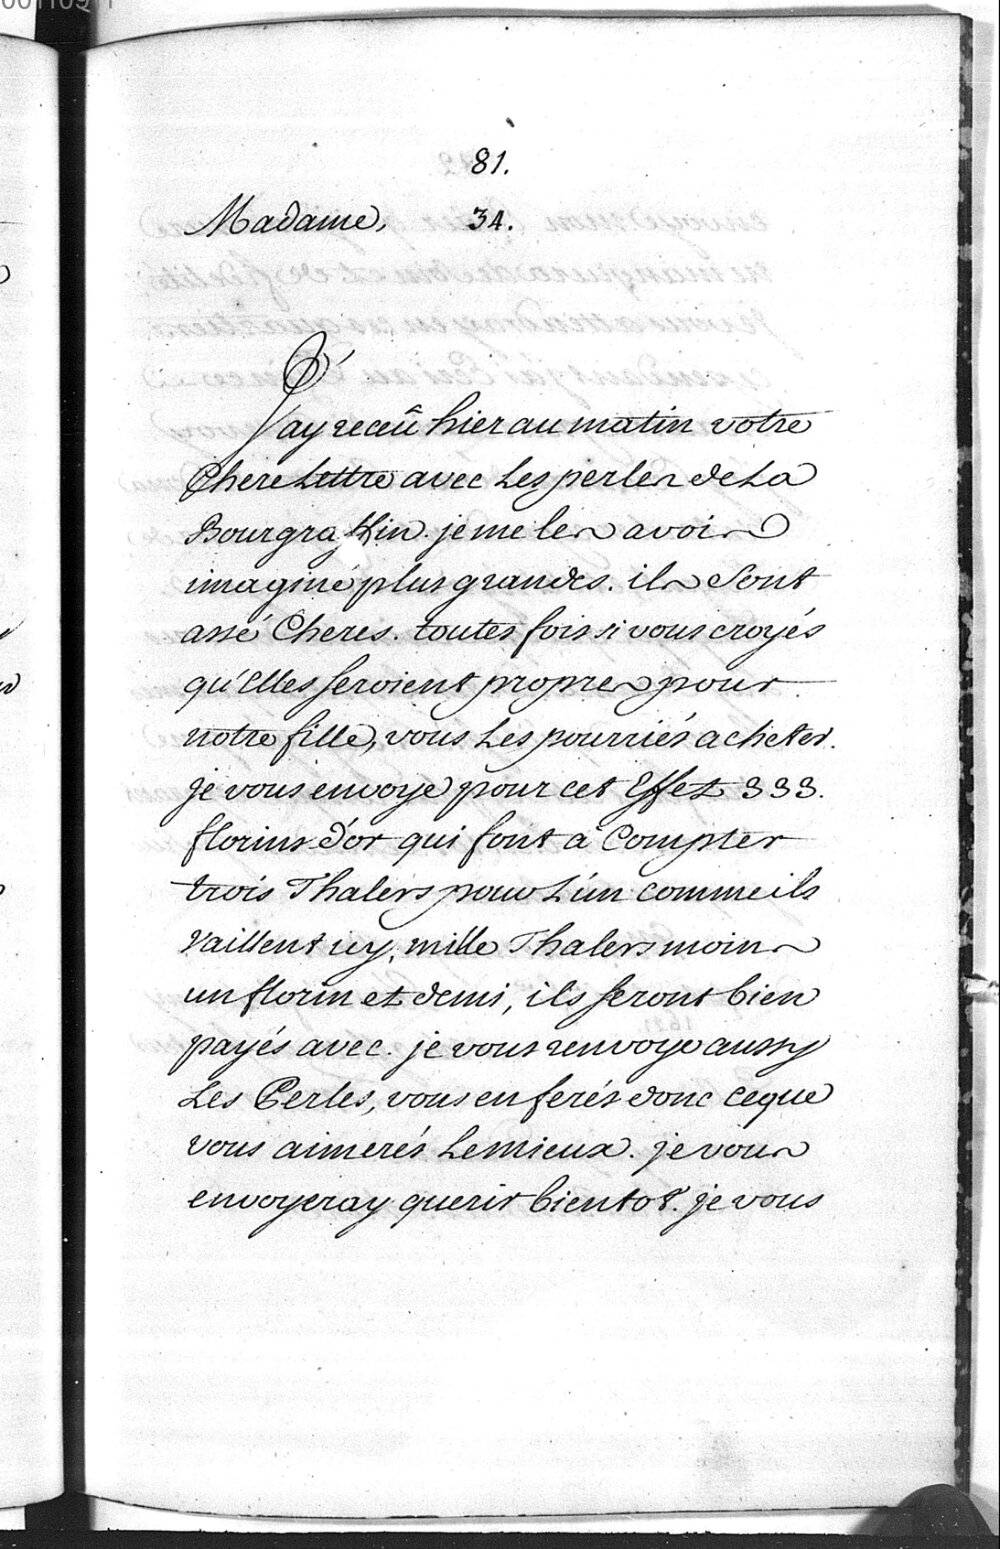 81.
Madame, 34.
J'ay receû hier au matin votre
Chere Lettre avec Les perles de La
Bourgraffin. je me les avois
imaginé plus grandes. ils sont
assé Cheres. toutes fois si vous croyés
qu'Elles seroient propres pour
notre fille, vous Les pourriés acheter.
je vous envoye pour cet Effet 333.
florins d'or qui font à Compter
trois Thalers pour L'un comme ils
vaillent icy, mille Thalers moins
un florin et demi, ils seront bien
payés avec. je vous renvoye aussy
Les Perles, vous en ferés donc ce que
vous aimerés Le mieux. je vous
envoyeray querir bientot. je vous